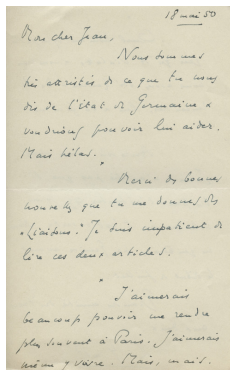 18 mai 50
Mon cher Jean,
Nous sommes
très attristés de ce que tu nous
dis de l'état de Germaine &
voudrions pouvoir lui aider.
Mais hélas.
"
Merci des bonnes
nouvelles que tu me donnes des
"Liaisons". Je suis impatient de
lire ces deux articles.
"
J'aimerais
beaucoup pouvoir me rendre
plus souvent à Paris. J'aimerais
même y vivre. Mais, mais.